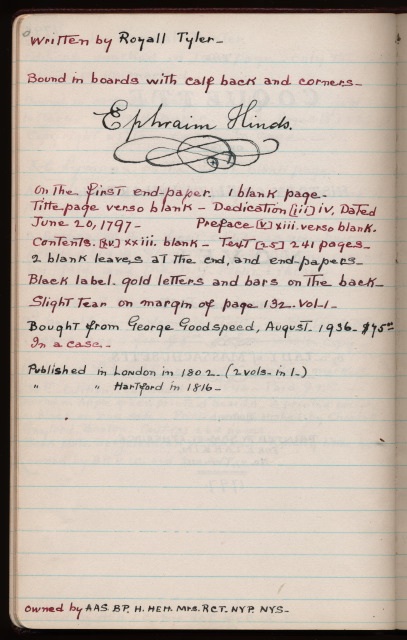 Written by Royall Tyler-
Bound in boards with calf back and corners-
Ephraim Hinds.
On the first end-paper. 1 blank page-
Title-page verso blank - Dedication [iii] iv, Dated
June 20, 1797- Preface [v] xiii. verso blank.
Contents. [xv] xxiii. blank - Text [25] 241 pages-
2 blank leaves at the end, and end-papers-
Black label. gold letters and bars on the back-
Slight tear on margin of page 132. Vol-1-
Bought from George Goodspeed, August-1936- $75⁰⁰
In a case-
Published in London in 1802- (2 vols- in 1-)
" " Hartford in 1816-
Owned by AAS. BP. H. HEH. Mrs. RCT. NYP. NYS-